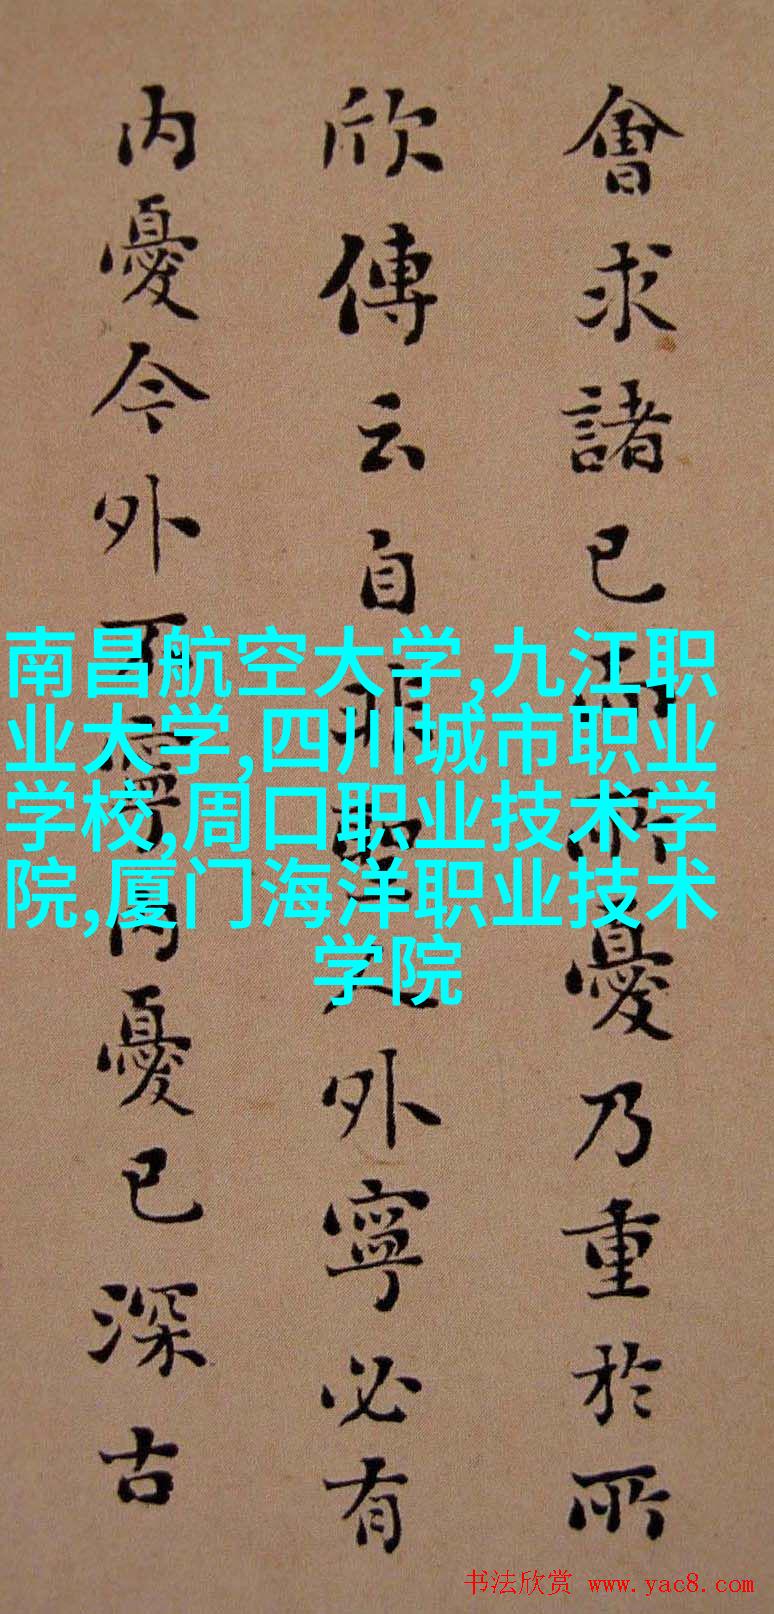 會求諸己而所憂乃重於所
欣傳云自非聖人外寧必有
内憂今外不寧内憂已深古
南昌航空大学,九江职
业大学,四川城市职业
学校,周口职业技术学
院,厦门海洋职业技术
学院
书法欣赏 www.yac8.com